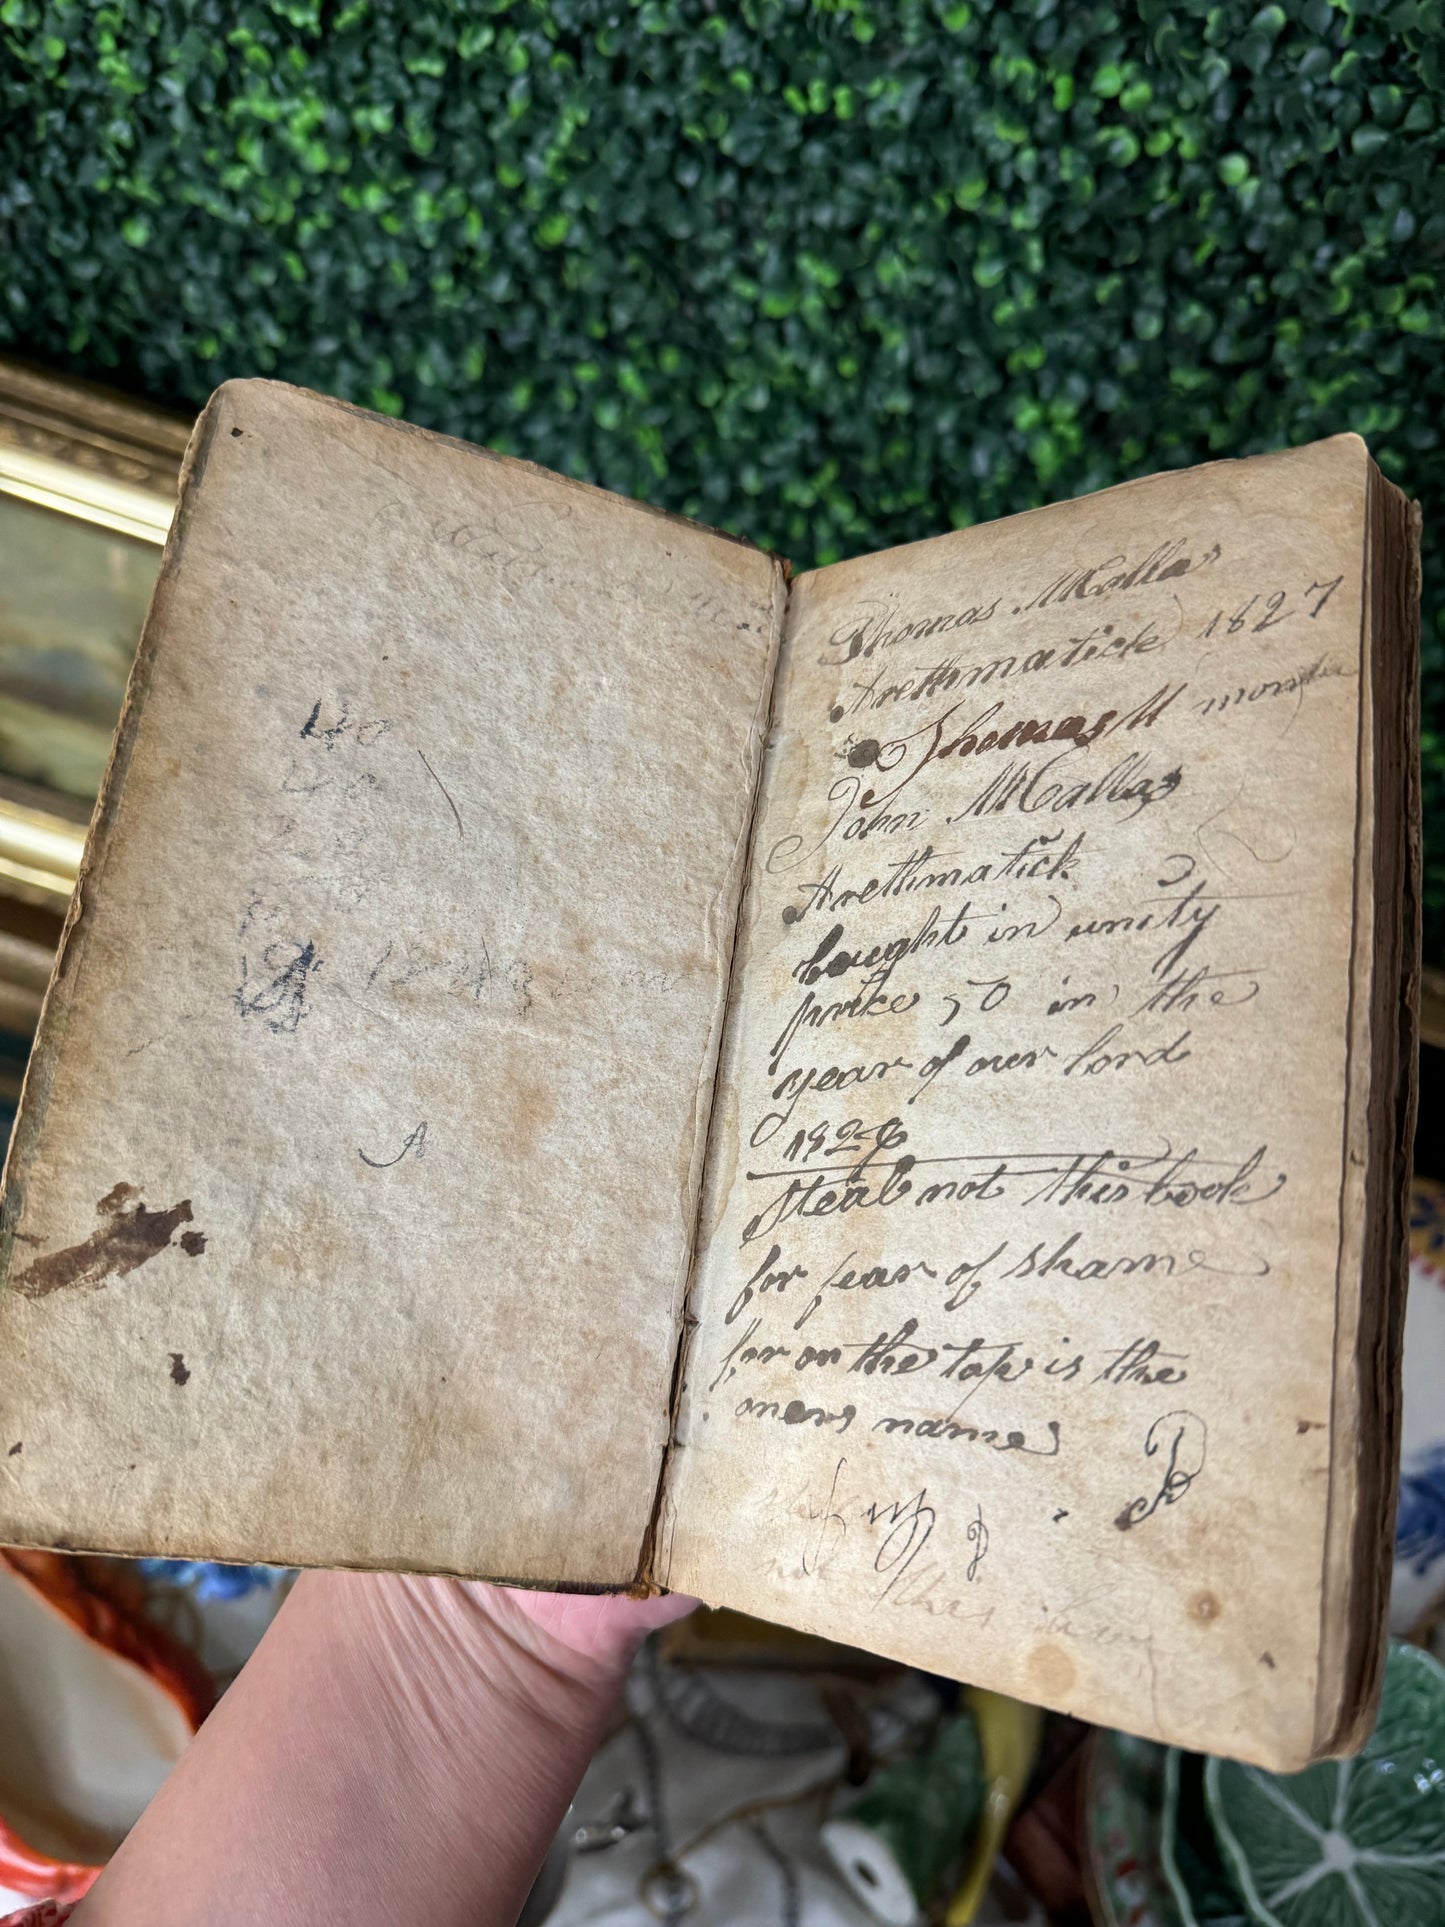 40
40
20
A
Thomas McCalla's
Arethmatick 1827
Thomas M
John McCallas
Arethmatick
bought in unity
price 50 in the
year of our lord
182
Steal not this book
for fear of shame
for on the top is the
oners name
P
not this